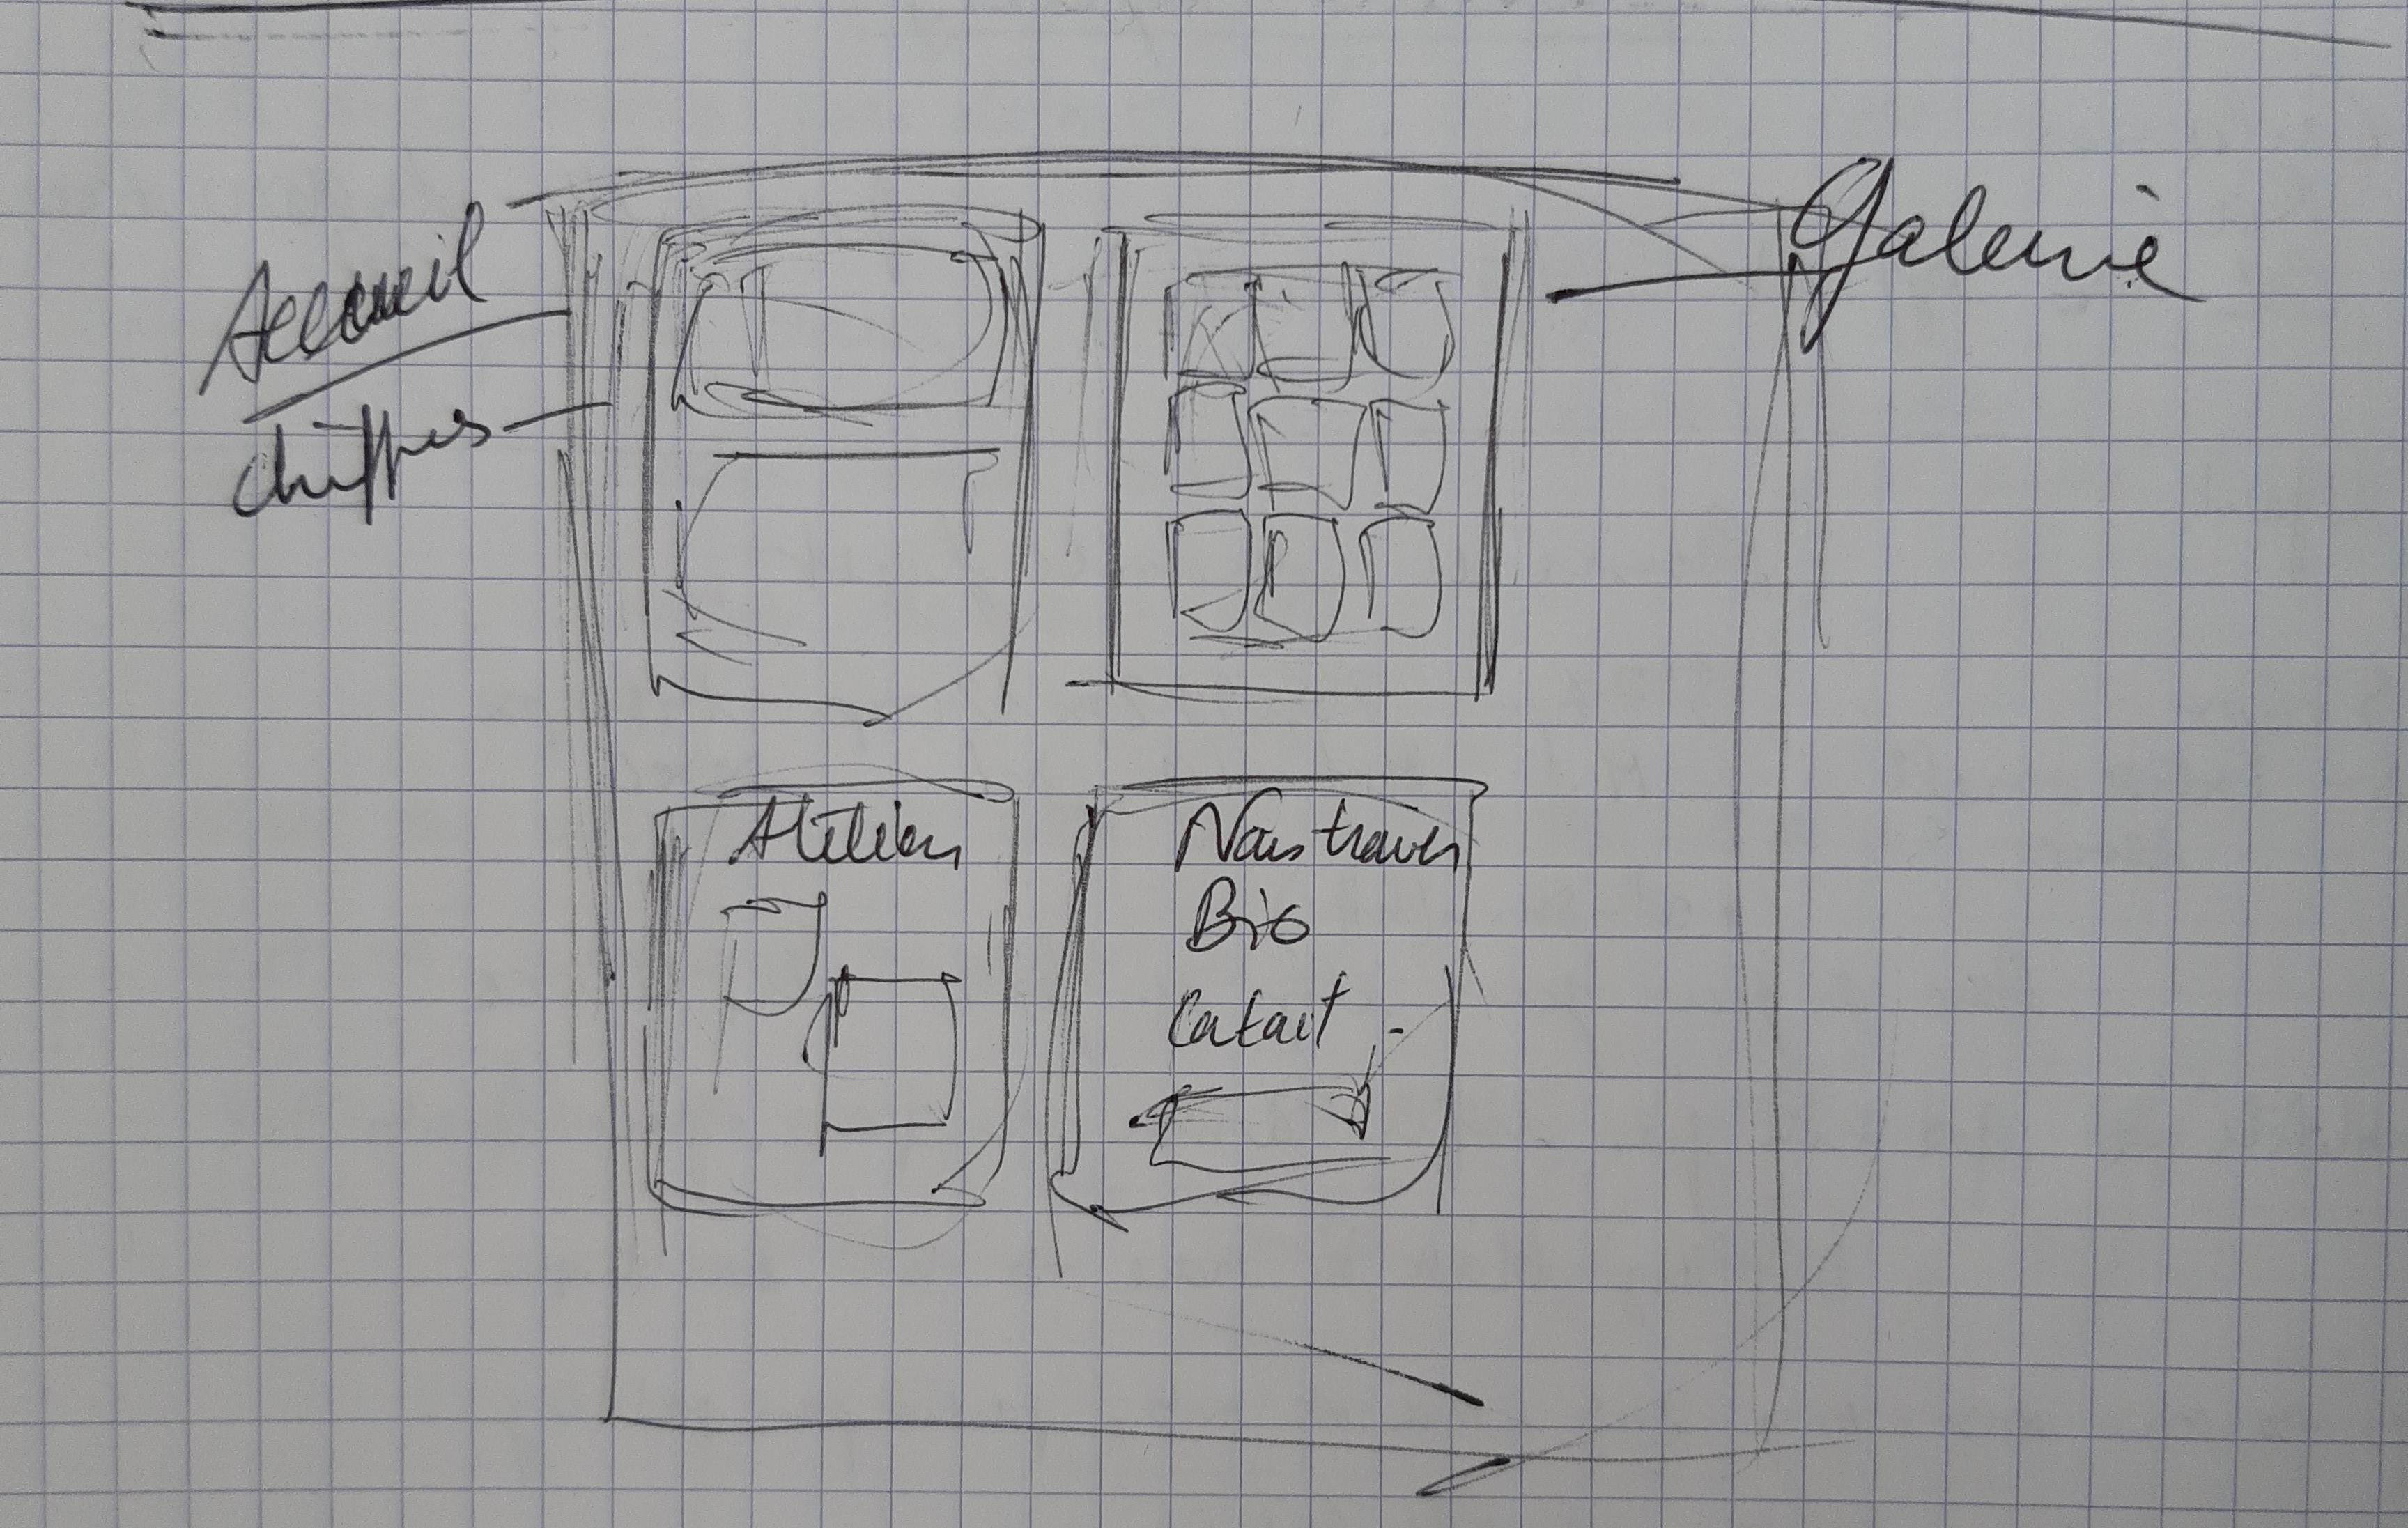 Accueil
chiffres
Galerie
Atelier
Nous trouver
Bio
Contact